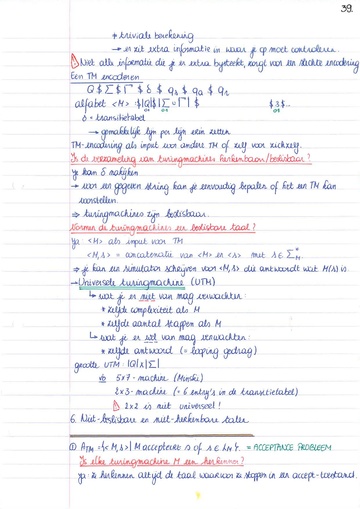 39.
* triviale berekening
→ er zit extra informatie in waar je op moet controleren.
⚠ Niet alle informatie die je er extra bijsteekt, zorgt voor een slechte encodering
Een TM encoderen
Q $ Σ $ Γ $ δ $ qs $ qa $ qr
alfabet <M> : $ $...
δ = transitietabel
→ gemakkelijk lijn per lijn erin zetten.
TM-encodering als input voor andere TM of zelf voor zichzelf.
Is de verzameling van turingmachines herkenbaar/beslisbaar?
Je kan δ nakijken
→ voor een gegeven string kan je eenvoudig bepalen of het een TM kan
voorstellen.
⇒ turingmachines zijn beslisbaar.
Vormen de turingmachines een beslisbare taal?
Ja <M> als input voor TM
<M,s> = concatenatie van <M> en <s> met s ∈ Σ*M
⇒ je kan een simulator schrijven voor <M,s> die antwoordt wat M(s) is.
→ Universele turingmachine (UTM)
↳ wat je er niet van mag verwachten:
* zelfde complexiteit als M
* zelfde aantal stappen als M
↳ wat je er wel mag verwachten:
* zelfde antwoord (= looping gedrag)
grootte UTM: |Q|x|Σ|
vb 5x7-machine (Minski)
2x3-machine (= 6 entry's in de transitietabel)
⚠ 2x2 is niet universeel!
6. Niet-beslisbare en niet-herkenbare talen
① ATM = {<M,s> | M accepteert s of s ∈ LM}. = ACCEPTANCE PROBLEEM
Is elke turingmachine M een herkenner?
ja: ze herkennen altijd de taal waarvoor ze stoppen in een accept-toestand.